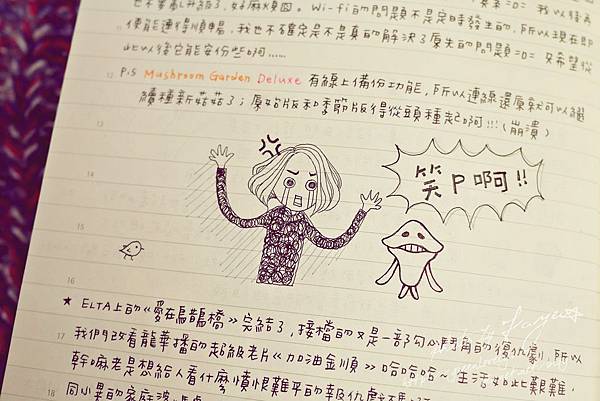 也不要亂升級了，好麻煩囧。Wi-Fi的問題不是定時發生的，所以現在即
便能連得順暢，我也不確定是不是真的解決了原先的問題=o= 只希望從
此以後它能安份些啊……
12
P.S Mushroom Garden Deluxe 有線上備份功能，所以連線還原就可以繼
續種新菇菇了；原始版和季節版得從頭種起啊!!!（崩潰）
13
14
笑P啊!!
15
16
★ ELTA上的《愛在烏鵲橋》完結了，接檔的又是一部勾心鬥角的復仇劇，所以
17
我們改看龍華播的超級老片《加油金順》哈哈哈~ 生活如此艱難，
幹嘛老是想給人看什麼憤恨難平的報仇
18